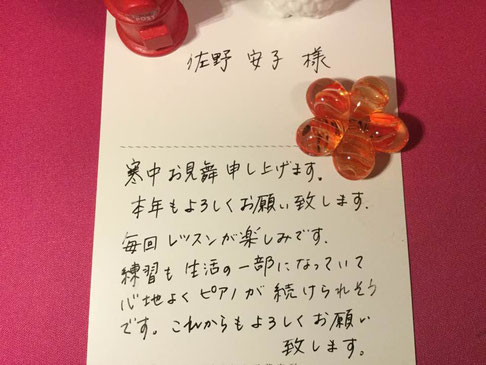 佐野 安子 様
寒中お見舞申し上げます。
本年もよろしくお願い致します.
毎回レッスンが楽しみです.
練習も生活の一部になっていて
心地よくピアノが続けられそう
です。これからもよろしくお願い
致します。